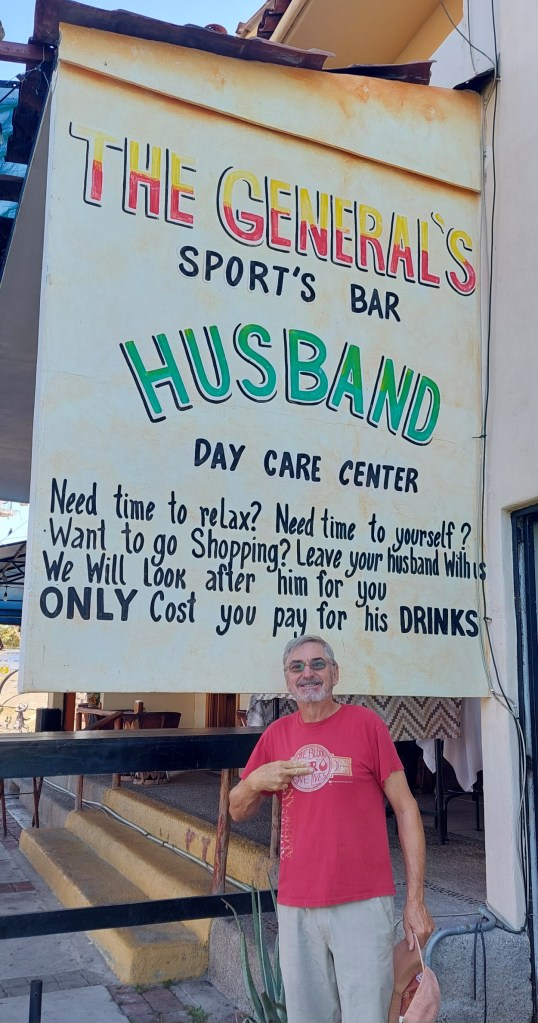 THE GENERAL'S
SPORT'S BAR
HUSBAND
DAY CARE CENTER
Need time to relax? Need time to yourself?
Want to go Shopping? Leave your husband With us
We Will LOOK after him for you
ONLY Cost you pay for his DRINKS